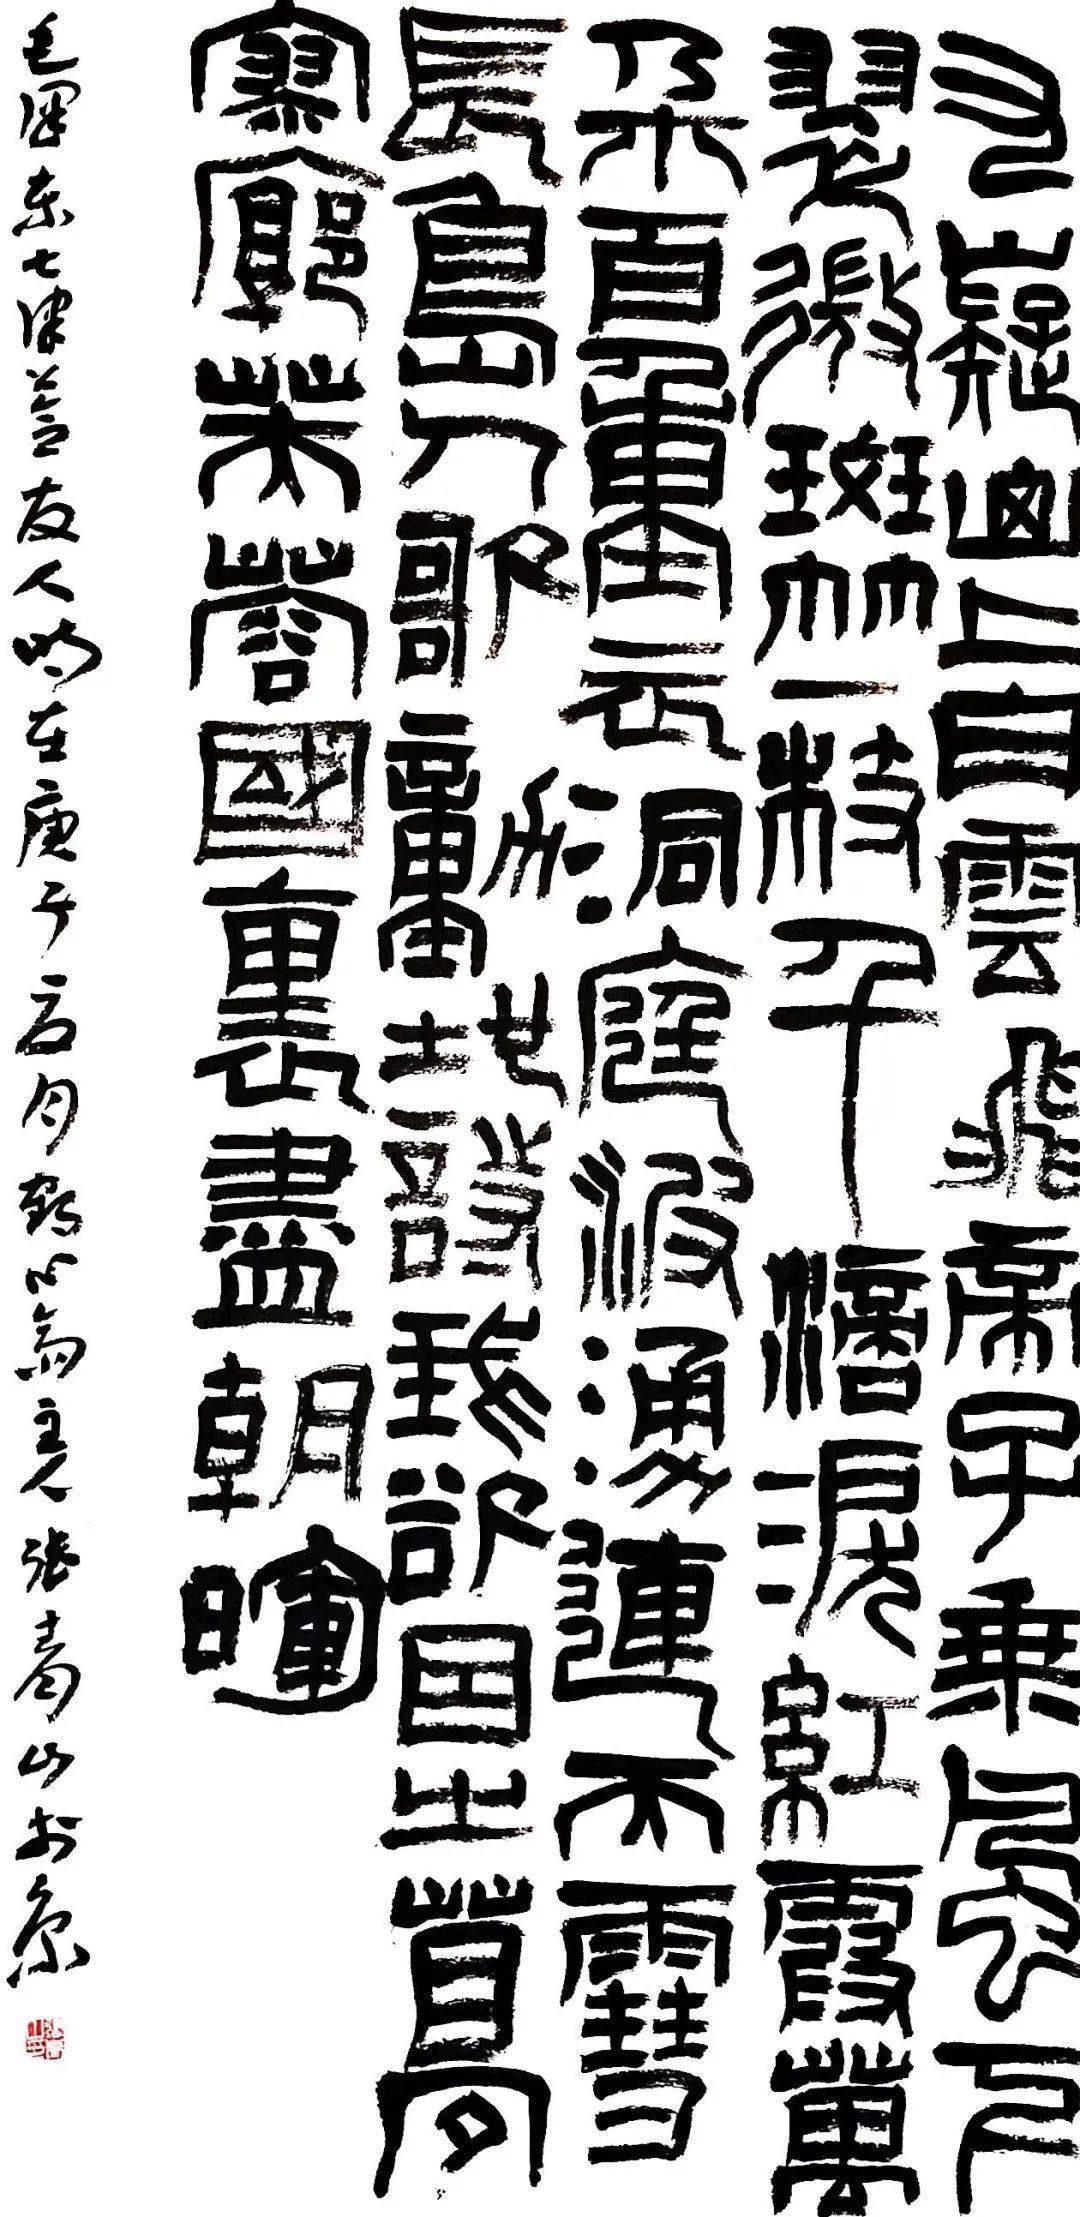 九嶷山上白雲飛帝子乘風下
翠微斑竹一枝千滴淚紅霞萬
朵百重衣洞庭波湧連天雪
長島人歌動地詩我欲因之夢
寥廓芙蓉國裏盡朝暉
毛澤東七律答友人時在庚子夏月心齋主人張青山於京